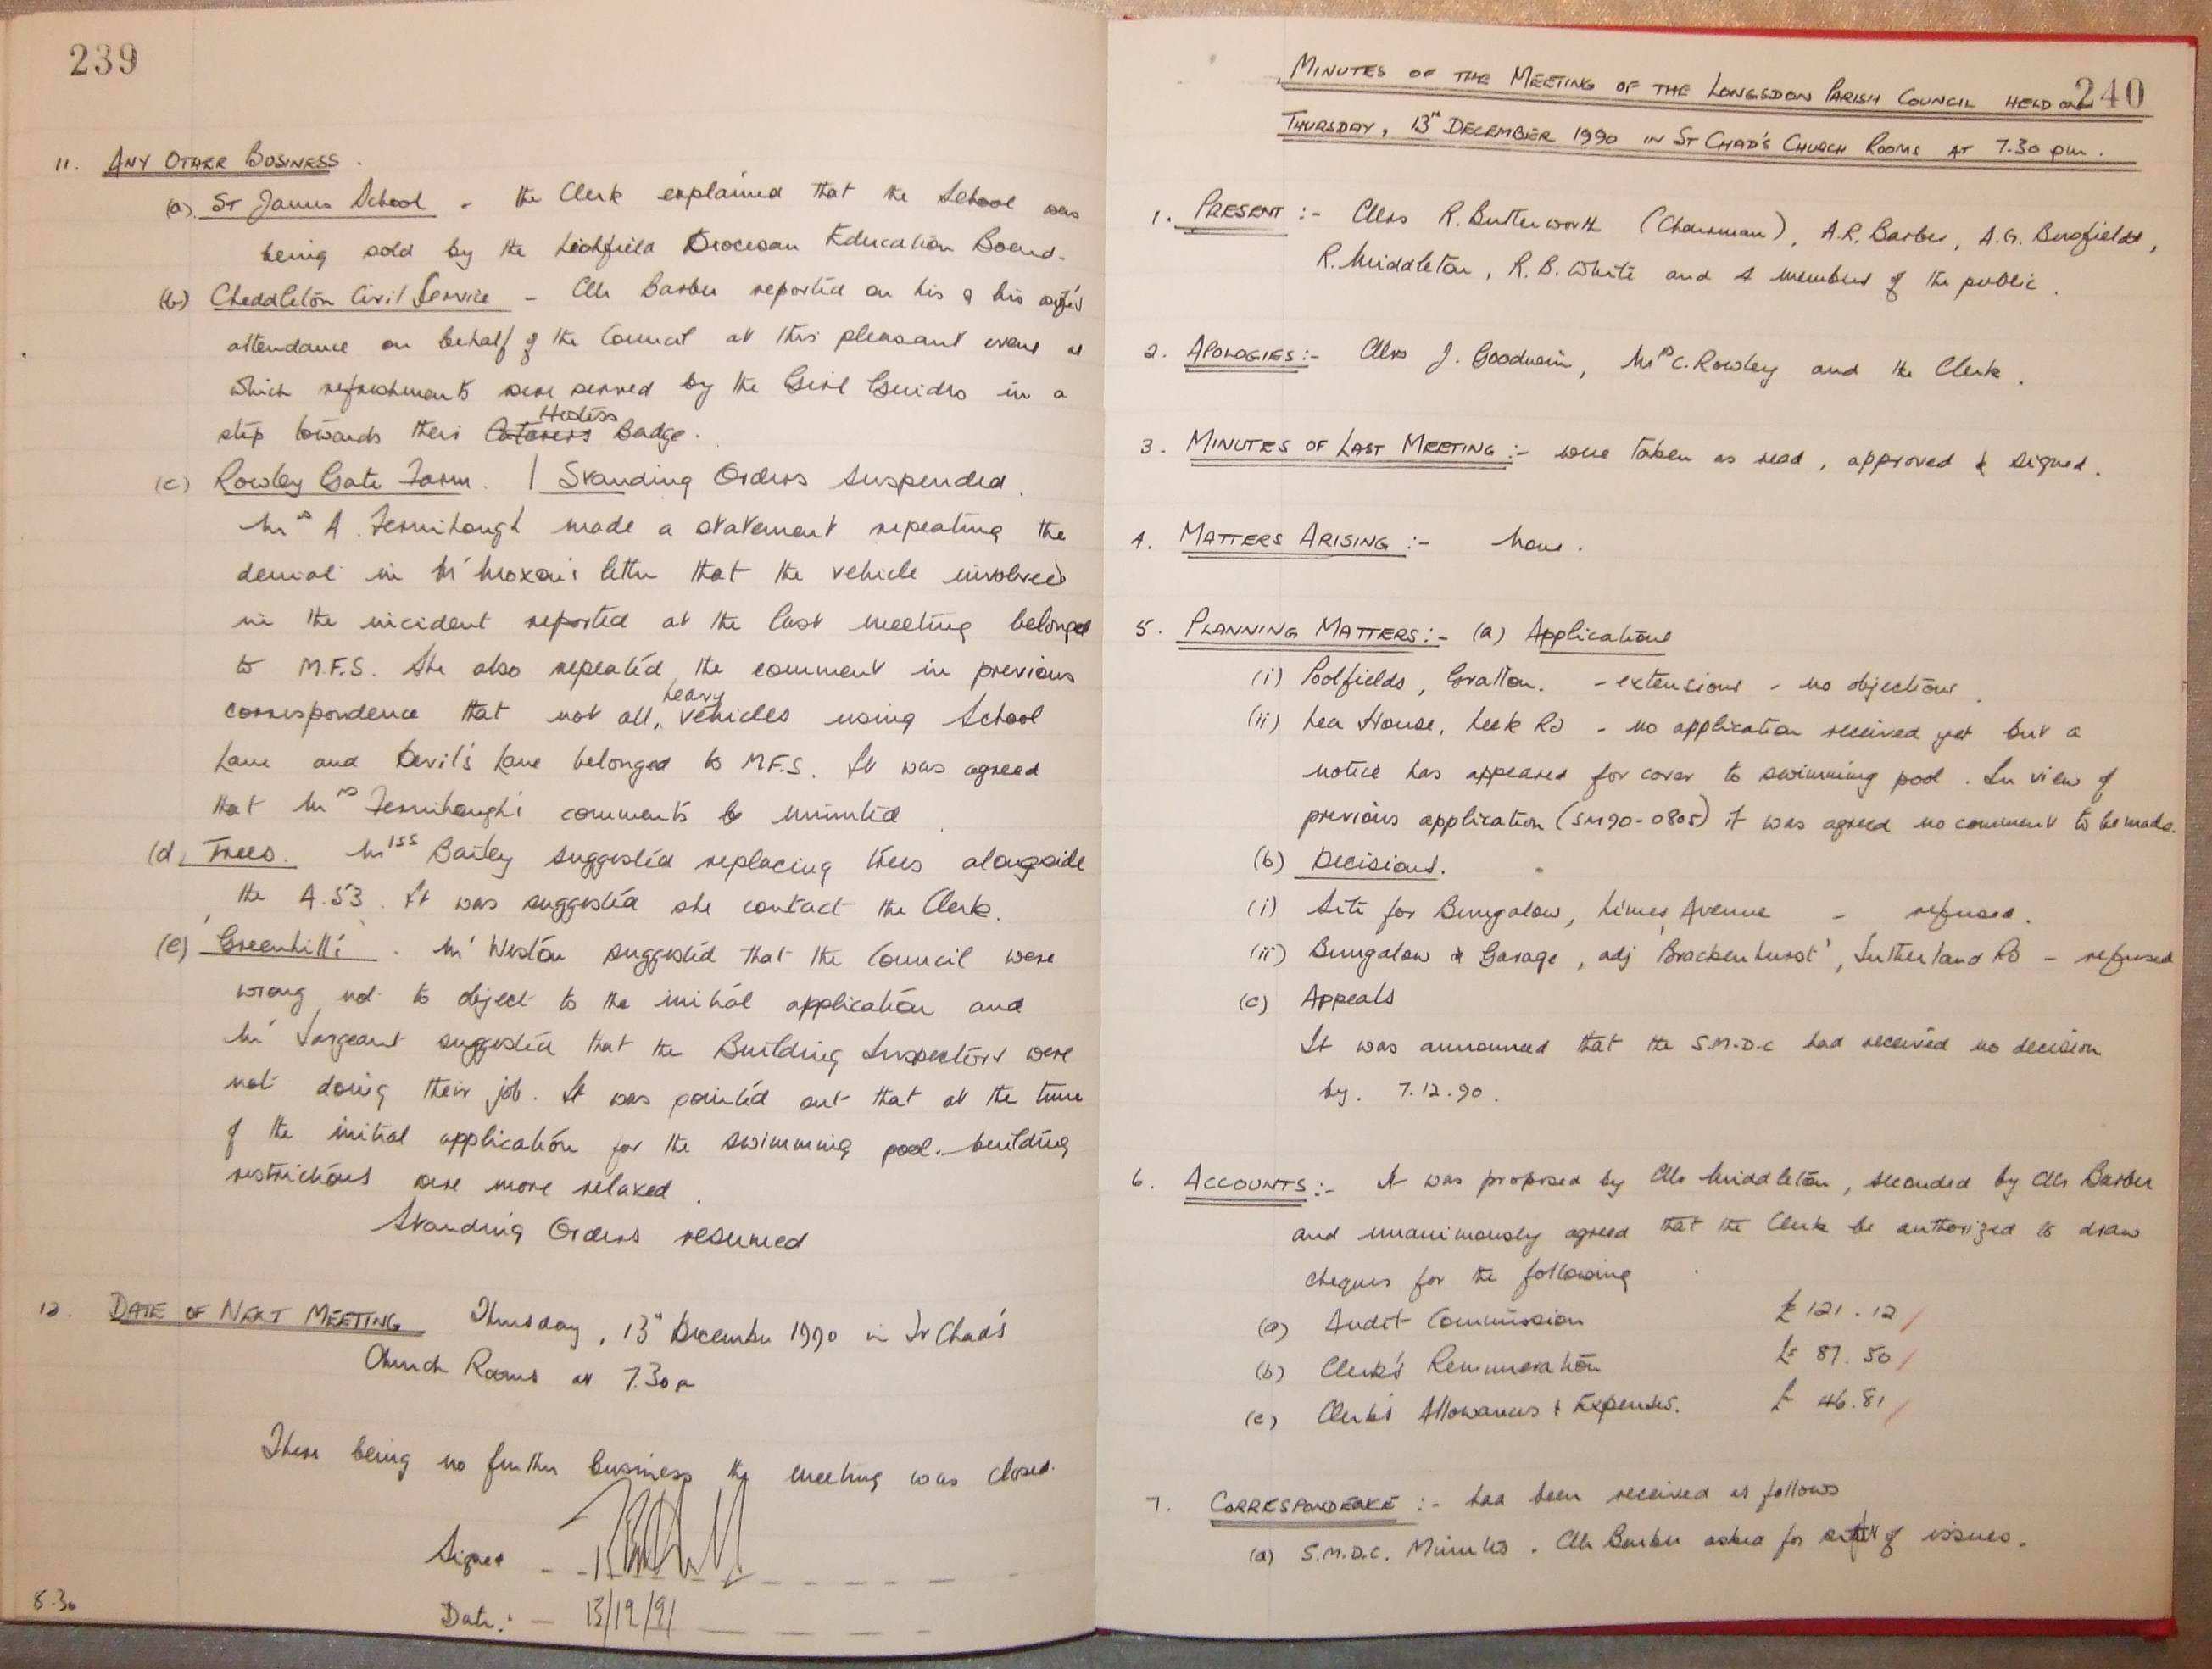 239
11. ANY OTHER BUSINESS.
(a) St James School - the Clerk explained that the School was
being sold by the Lichfield Diocesan Education Board.
(b) Cheddleton Civil Service - Cllr Barber reported on his & his wife's
attendance on behalf of the Council at this pleasant event at
which refreshments were served by the Girl Guides in a
Hostess
step towards their Caterers Badge.
(c) Rowley Gate Farm. | Standing Orders suspended.
Mrs A. Fernihough made a statement repeating the
denial in Mr Moxon's letter that the vehicle involved
in the incident reported at the last meeting belonged
to M.F.S. She also repeated the comment in previous
heavy
correspondence that not all, vehicles using School
Lane and Devil's Lane belonged to M.F.S. It was agreed
that Mrs Fernihough's comments be minuted.
(d) Trees. Miss Bailey suggested replacing trees alongside
the A.53. It was suggested she contact the Clerk.
(e) 'Greenhills' - Mr Weston suggested that the Council were
wrong not to object to the initial application and
Mr Sargeant suggested that the Building Inspectors were
not doing their job. It was pointed out that at the time
of the initial application for the swimming pool, building
restrictions were more relaxed.
Standing Orders resumed
12. DATE OF NEXT MEETING Thursday, 13th December 1990 in St Chad's
Church Rooms at 7.30p
There being no further business the meeting was closed.
Signed
Date: - 13/12/91
8.30
240
MINUTES OF THE MEETING OF THE LONGSDON PARISH COUNCIL HELD ON
THURSDAY, 13TH DECEMBER 1990 IN ST CHAD'S CHURCH ROOMS AT 7.30 pm.
1. PRESENT :- Cllrs R. Butterworth (Chairman), A.R. Barber, A.G. Burgfields,
R. Middleton, R. B. White and 4 members of the public.
2. APOLOGIES :- Cllrs J. Goodwin, Mrs C. Rowley and the Clerk.
3. MINUTES OF LAST MEETING :- were taken as read, approved & signed.
4. MATTERS ARISING :- None.
5. PLANNING MATTERS :- (a) Applications
(i) Poolfields, Gratton. - extensions - no objections.
(ii) Lea House, Leek Rd - no application received yet but a
notice has appeared for cover to swimming pool. In view of
previous application (SM90-0805) it was agreed no comment to be made.
(b) Decisions.
(i) Site for Bungalow, Limes Avenue - refused.
(ii) Bungalow & Garage, adj 'Brackenhurst', Sutherland Rd - refused
(c) Appeals
It was announced that the S.M.D.C had received no decision
by. 7.12.90.
6. ACCOUNTS :- It was proposed by Cllr Middleton, seconded by Cllr Barber
and unanimously agreed that the Clerk be authorized to draw
cheques for the following
(a) Audit Commission £121.12
(b) Clerk's Remuneration £ 87.50
(c) Clerk's Allowances & Expenses. £ 46.81
7. CORRESPONDENCE :- had been received as follows
(a) S.M.D.C. Minutes. Cllr Barber asked for of issues.